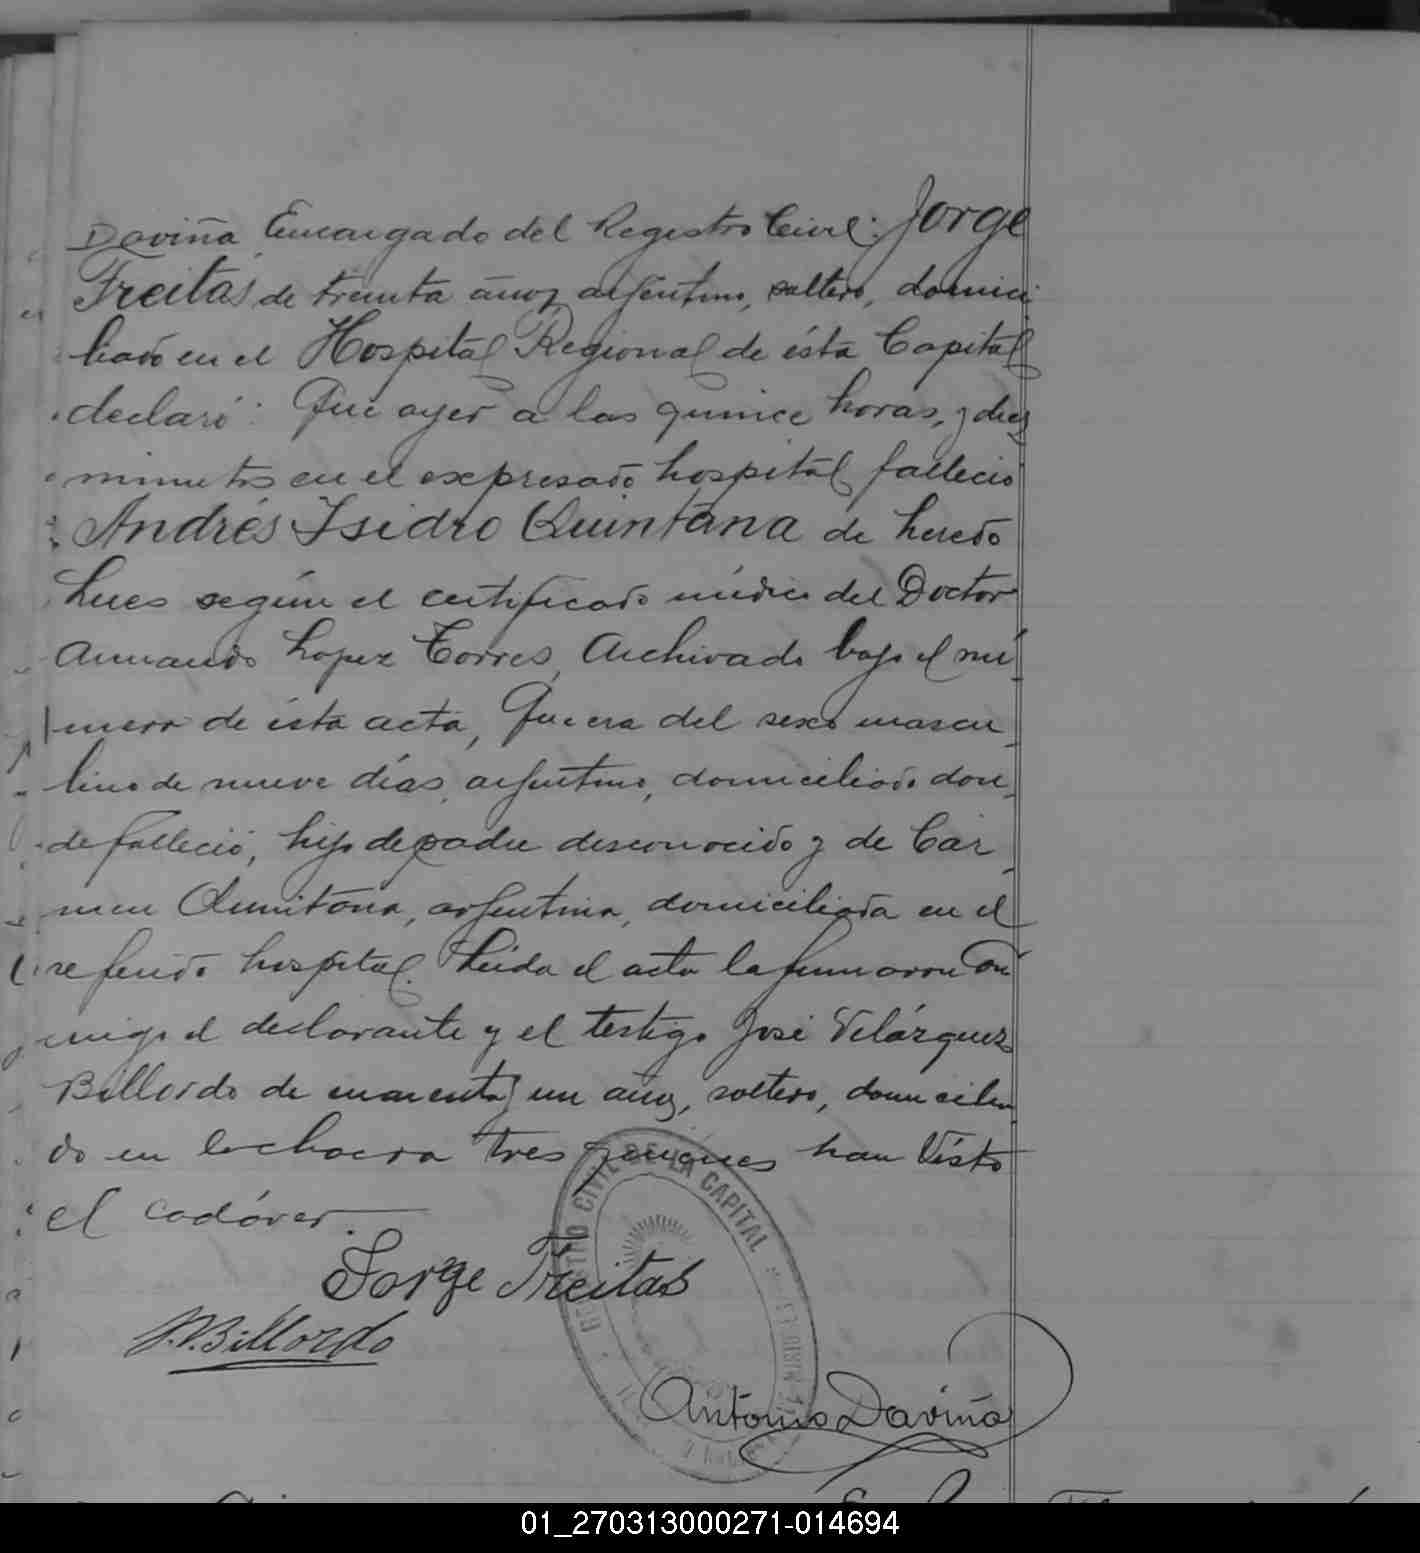 Daviña Encargado del Registro Civil: Jorge
Freitas de treinta años, argentino, soltero, domici
liado en el Hospital Regional de ésta Capital
declaró: Que ayer a las quince horas, y diez
minutos en el expresado hospital falleció
Andrés Isidro Quintana de heredo
lues según el certificado médico del Doctor
Armando Lopez Torres, Archivado bajo el nú
mero de ésta acta, Que era del sexo mascu
lino de nueve días, argentino, domiciliado don
de falleció, hijo de padre desconocido y de Car
men Quintana, argentina, domiciliada en el
referido hospital. Leída el acta la firmaron con
migo el declarante y el testigo José Velázquez
Billordo de cuarenta y un años, soltero, domicilia
do en la chacra tres quienes han Visto
el cadáver.
Jorge Freitas
J.V.Billordo
REGISTRO CIVIL DE LA CAPITAL
Antonio Daviña
01_270313000271-014694